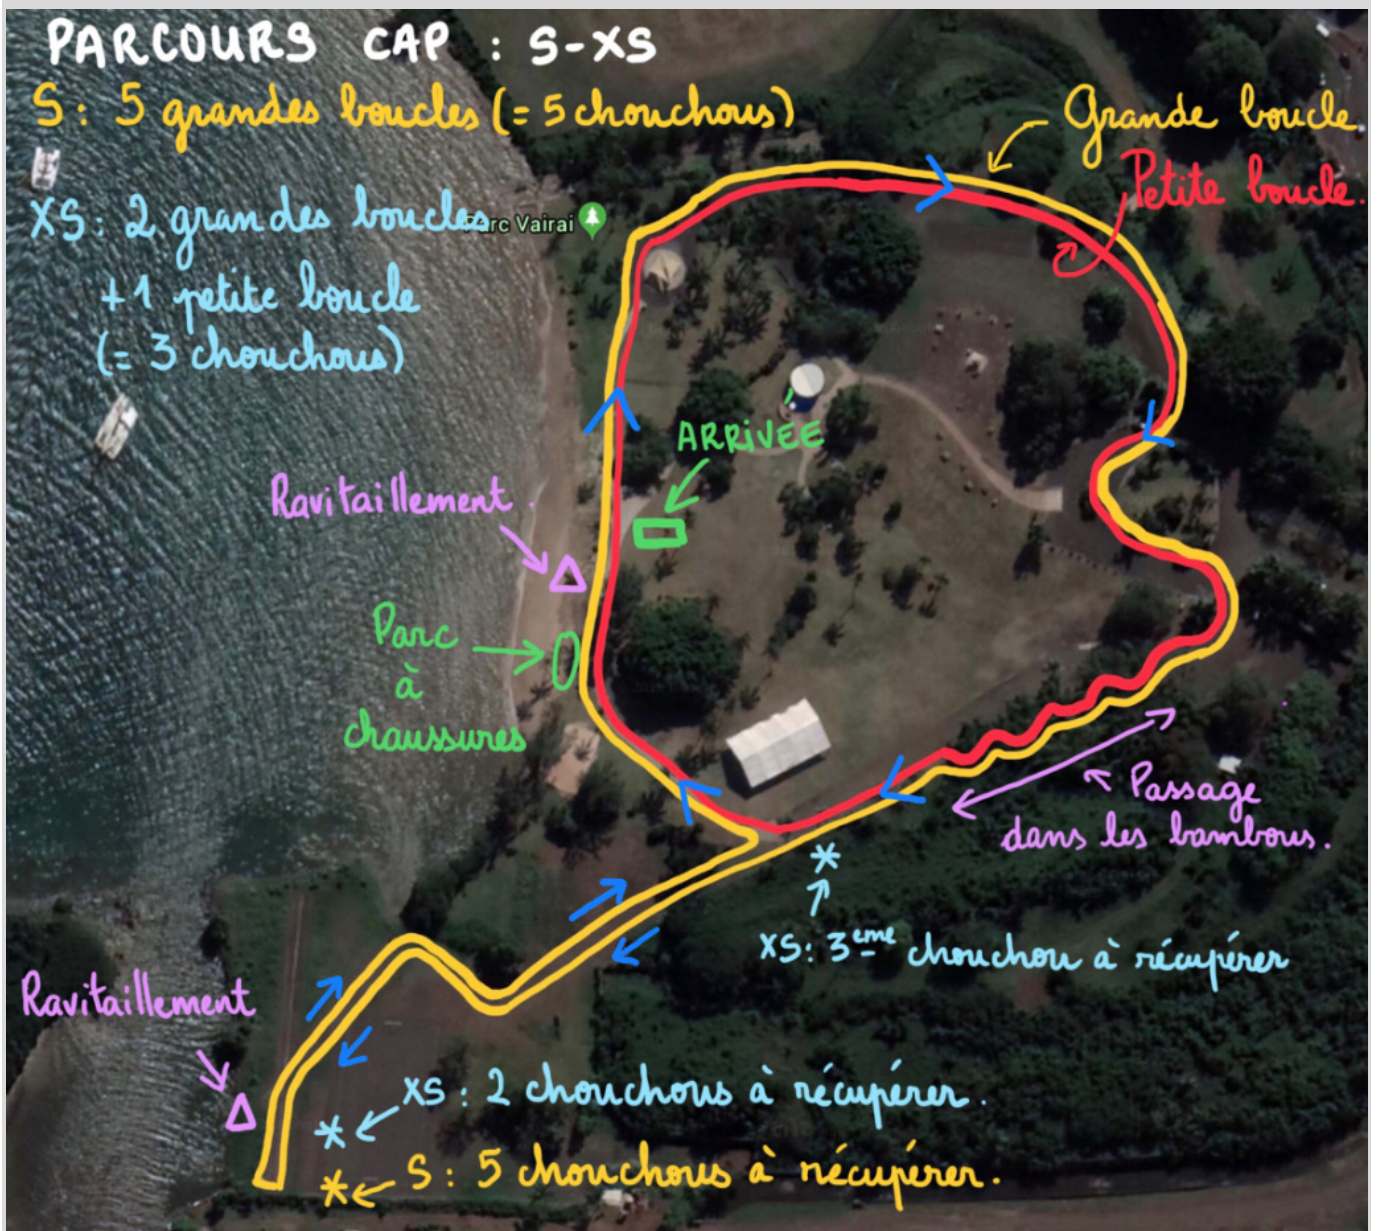 PARCOURS CAP : S-XS
S: 5 grandes boucles (= 5 chouchous)
Grande boucle.
Petite boucle.
XS: 2 grandes boucles
Parc Vairai
+1 petite boucle
(= 3 chouchous)
ARRIVÉE
Ravitaillement.
Parc
à
chaussures
Passage
dans les bambous.
XS: 3ème chouchou à récupérer
Ravitaillement
XS: 2 chouchous à récupérer.
S: 5 chouchous à récupérer.